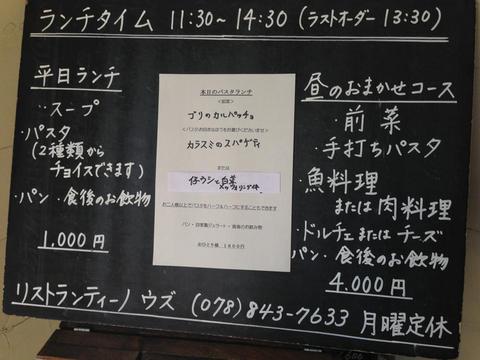 ランチタイム 11:30~14:30 (ラストオーダー 13:30)
平日ランチ
・スープ
・パスタ
(2種類から
チョイスできます)
・パン・食後のお飲物
1,000円
本日のパスタランチ
<前菜>
ブリのカルパッチョ
<パスタお好みなほうをお選びくださいませ>
カラスミのスパゲティ
または
仔ウシと白菜
お二人様以上でパスタをハーフ&ハーフにすることもできます
パン・自家製ジェラート・食後のお飲み物
お ひとり様 1800円
昼のおまかせコース
・前菜
・手打ちパスタ
・魚料理
または肉料理
・ドルチェまたはチーズ
パン・食後のお飲物
4.000円
リストランティーノ ウズ (078)843-7633 月曜定休